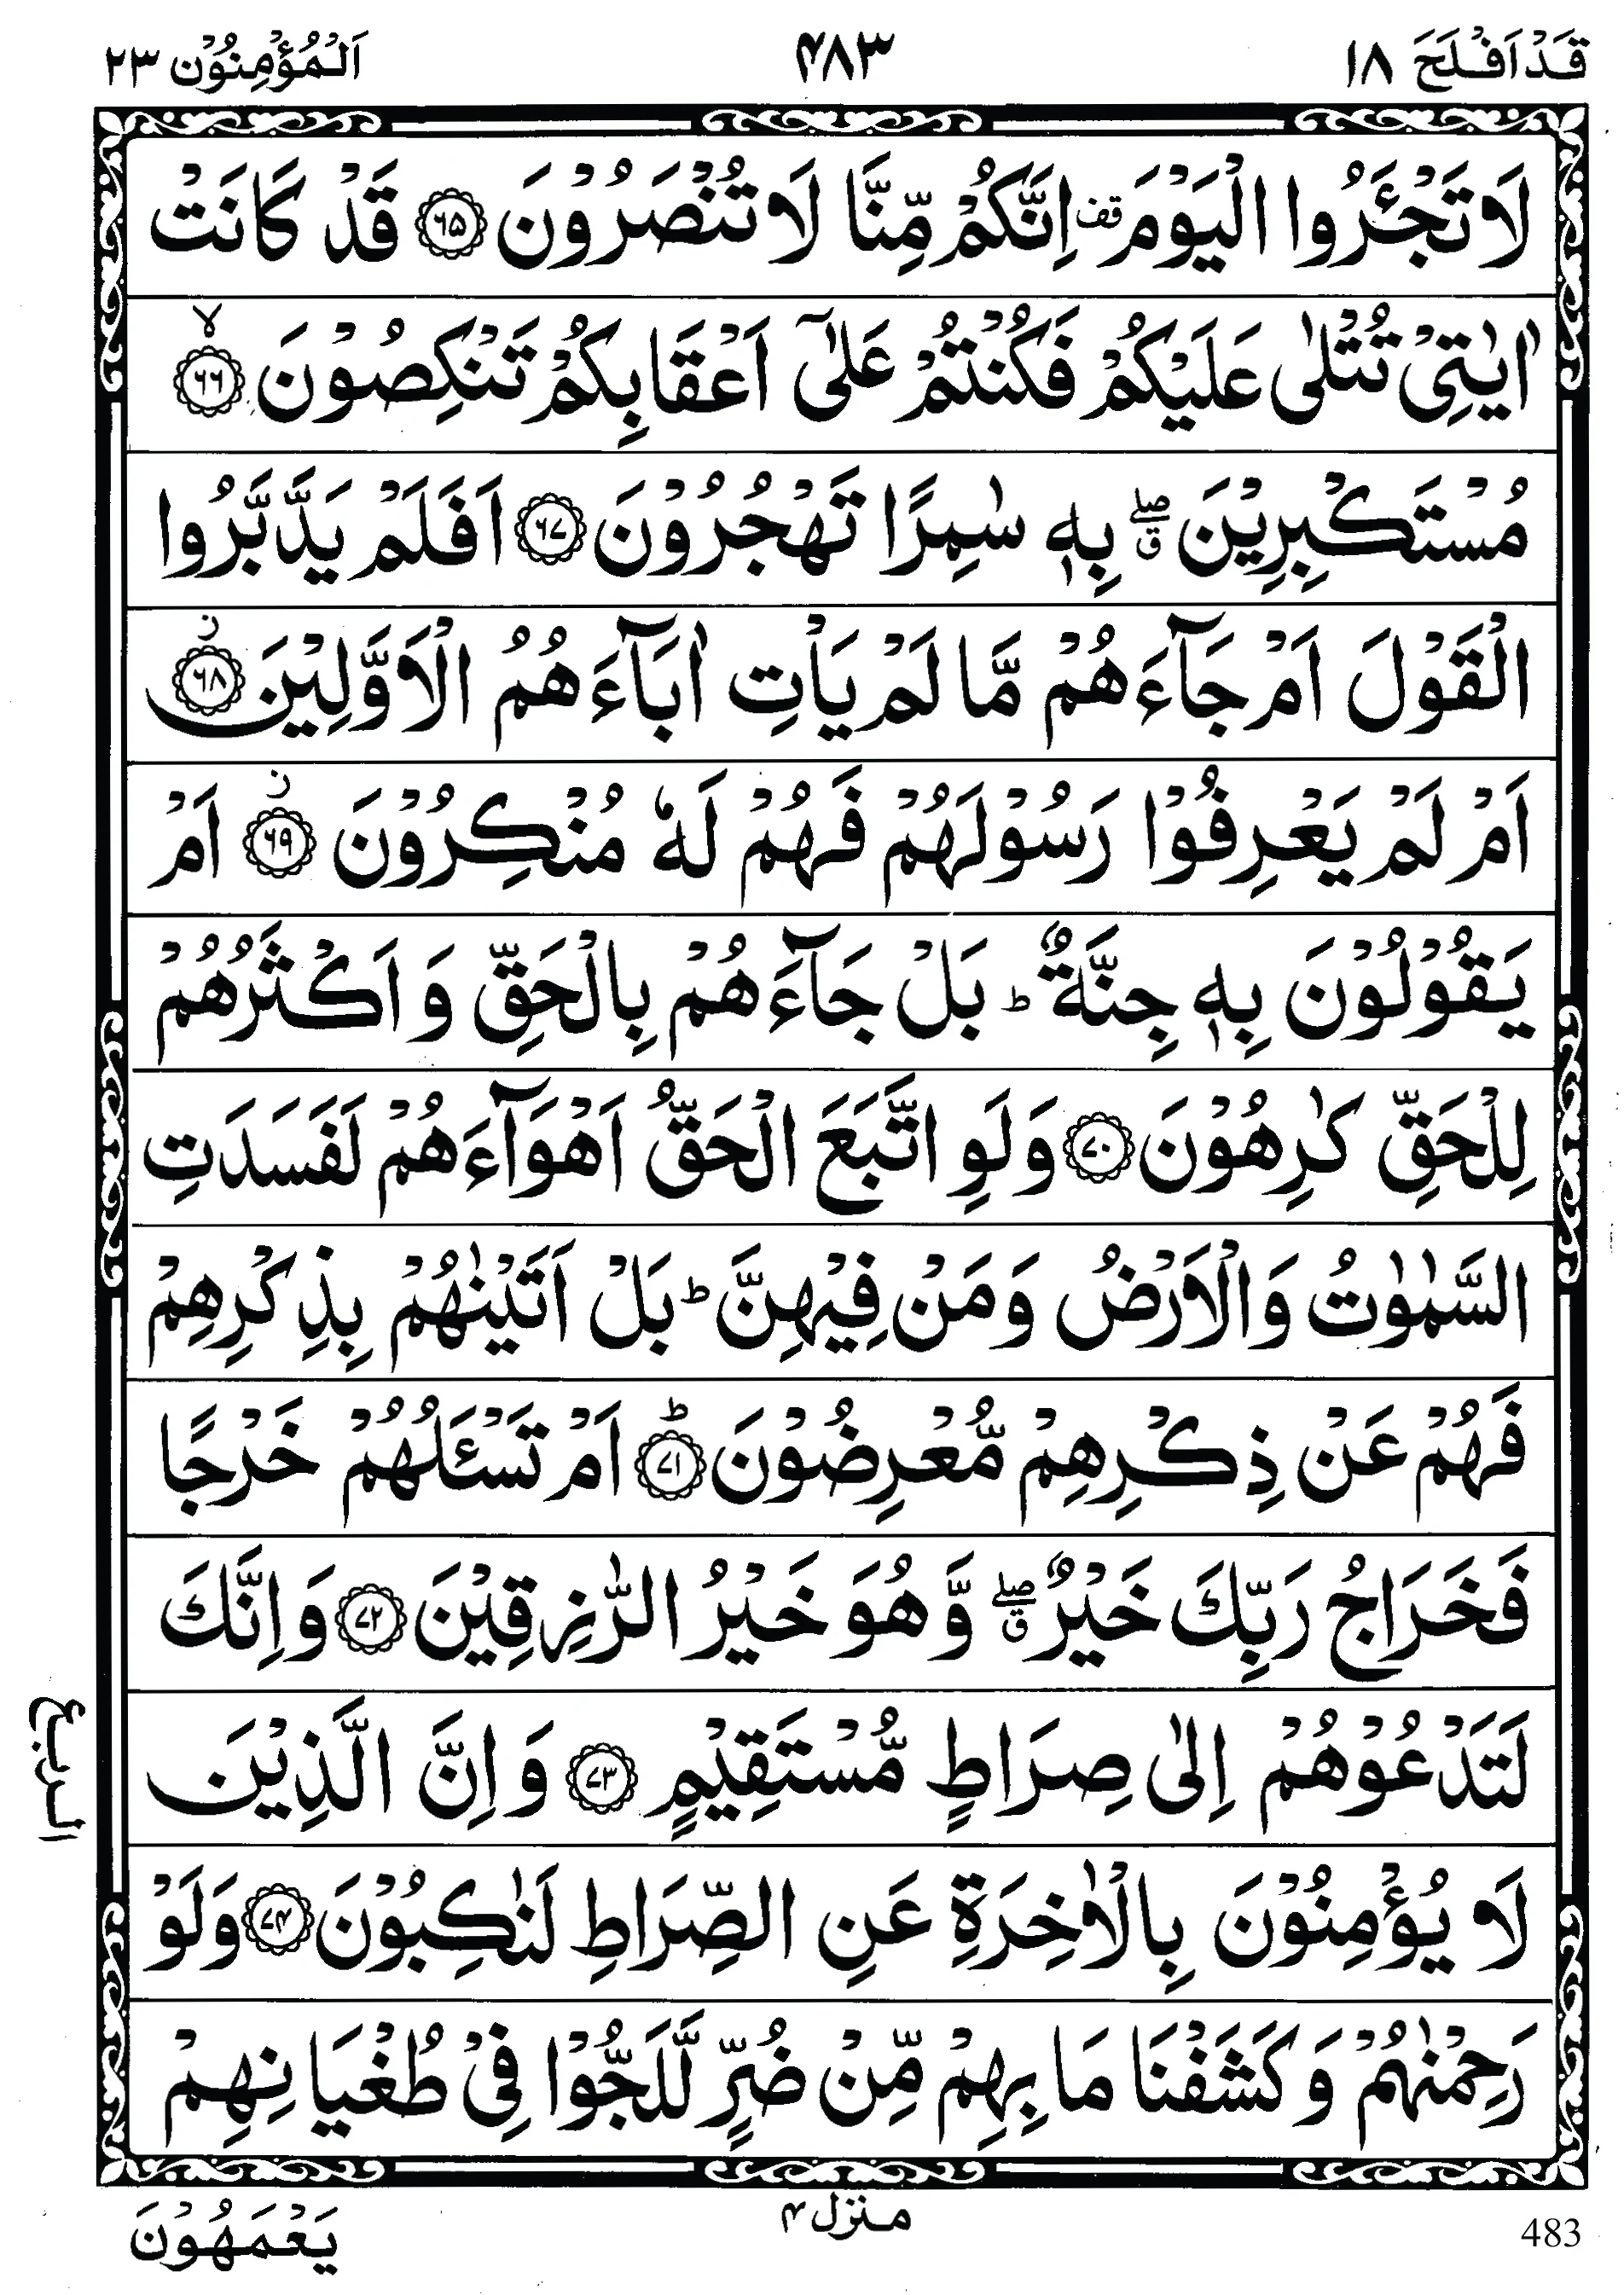 قَدْ اَفْلَحَ ١٨ ۴٨٣ اَلْمُؤْمِنُوْن ٢٣
لَا تَجْـَٔرُوا الْيَوْمَ قف اِنَّكُمْ مِّنَّا لَا تُنْصَرُوْنَ ۶۵ قَدْ كَانَتْ
اٰيٰتِیْ تُتْلٰى عَلَيْكُمْ فَكُنْتُمْ عَلٰۤى اَعْقَابِكُمْ تَنْكِصُوْنَ ۙ ۶۶
مُسْتَكْبِرِيْنَ ۖۗ بِهٖ سٰمِرًا تَهْجُرُوْنَ ۶۷ اَفَلَمْ يَدَّبَّرُوا
الْقَوْلَ اَمْ جَآءَهُمْ مَّا لَمْ يَاْتِ اٰبَآءَهُمُ الْاَوَّلِيْنَ ز ۶۸
اَمْ لَمْ يَعْرِفُوْا رَسُوْلَهُمْ فَهُمْ لَهٗ مُنْكِرُوْنَ ز ۶۹ اَمْ
يَقُوْلُوْنَ بِهٖ جِنَّةٌ ؕ بَلْ جَآءَهُمْ بِالْحَقِّ وَ اَكْثَرُهُمْ
لِلْحَقِّ كٰرِهُوْنَ ۷۰ وَلَوِ اتَّبَعَ الْحَقُّ اَهْوَآءَهُمْ لَفَسَدَتِ
السَّمٰوٰتُ وَالْاَرْضُ وَمَنْ فِيْهِنَّ ؕ بَلْ اَتَيْنٰهُمْ بِذِكْرِهِمْ
فَهُمْ عَنْ ذِكْرِهِمْ مُّعْرِضُوْنَ ؕ ۷۱ اَمْ تَسْـَٔلُهُمْ خَرْجًا
فَخَرَاجُ رَبِّكَ خَيْرٌ ۖۗ وَّهُوَ خَيْرُ الرّٰزِقِيْنَ ۷۲ وَاِنَّكَ
لَتَدْعُوْهُمْ اِلٰى صِرَاطٍ مُّسْتَقِيْمٍ ۷۳ وَاِنَّ الَّذِيْنَ
لَا يُؤْمِنُوْنَ بِالْاٰخِرَةِ عَنِ الصِّرَاطِ لَنٰكِبُوْنَ ۷۴ وَلَوْ
رَحِمْنٰهُمْ وَكَشَفْنَا مَا بِهِمْ مِّنْ ضُرٍّ لَّلَجُّوْا فِیْ طُغْيَانِهِمْ
الربع
يَعْمَهُوْنَ
منزل ۴
483